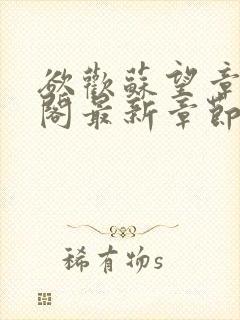 欲歡蘇望章
閣最新章節
稀有物s